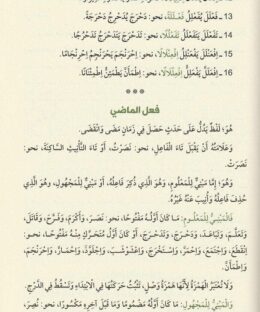 13 ـ فَعْلَلَ يُفَعْلِلُ فَعْلَلَةً، نحو: دَحْرَجَ يُدَحْرِجُ دَحْرَجَةً.
14 ـ تَفَعْلَلَ يَتَفَعْلَلُ تَفَعْلُلًا، نحو: تَدَحْرَجَ يَتَدَحْرَجُ تَدَحْرُجًا.
15 ـ اِفْعَنْلَلَ يَفْعَنْلِلُ اِفْعِنْلَالًا، نحو: اِحْرَنْجَمَ يَحْرَنْجِمُ اِحْرِنْجَامًا.
16 ـ اِفْعَلَلَّ يَفْعَلِلُّ اِفْعِلَّالًا، نحو: اِطْمَأَنَّ يَطْمَئِنُّ اِطْمِئْنَانًا.
فعل الماضي
هُوَ: لَفْظٌ يَدُلُّ عَلَى حَدَثٍ حَصَلَ فِي زَمَانٍ مَضَى وَانْقَضَى.
وَعَلَامَتُهُ أَنْ يَقْبَلَ تَاءَ الْفَاعِلِ، نحو: نَصَرْتُ، أَوْ تَاءَ التَّأْنِيثِ السَّاكِنَةَ، نحو:
نَصَرَتْ.
وَهُوَ: إِمَّا مَبْنِيٌّ لِلْمَعْلُومِ، وَهُوَ الَّذِي ذُكِرَ فَاعِلُهُ، أَوْ مَبْنِيٌّ لِلْمَجْهُولِ، وَهُوَ الَّذِي
حُذِفَ فَاعِلُهُ وَأُنِيبَ عَنْهُ غَيْرُهُ.
فَالْمَبْنِيُّ لِلْمَعْلُومِ: مَا كَانَ أَوَّلُهُ مَفْتُوحًا، نحو: نَصَرَ، وَأَكْرَمَ، وَفَرَّحَ، وَقَاتَلَ،
وَتَعَلَّمَ، وَتَبَاعَدَ، وَدَحْرَجَ، وَتَدَحْرَجَ، أَوْ كَانَ أَوَّلُ مُتَحَرِّكٍ مِنْهُ مَفْتُوحًا، نحو:
اِنْقَطَعَ، وَاجْتَمَعَ، وَاحْمَرَّ، وَاسْتَخْرَجَ، وَاعْشَوْشَبَ، وَاجْلَوَّذَ، وَاحْمَارَّ، وَاحْرَنْجَمَ،
وَاطْمَأَنَّ.
وَلَا تُعْتَبَرُ الْهَمْزَةُ لِأَنَّهَا هَمْزَةُ وَصْلٍ، تَثْبُتُ حَرَكَتُهَا فِي الِابْتِدَاءِ وَتَسْقُطُ فِي الدَّرْجِ.
وَالْمَبْنِيُّ لِلْمَجْهُولِ: مَا كَانَ أَوَّلُهُ مَضْمُومًا وَمَا قَبْلَ آخِرِهِ مَكْسُورًا، نحو: نُصِرَ،